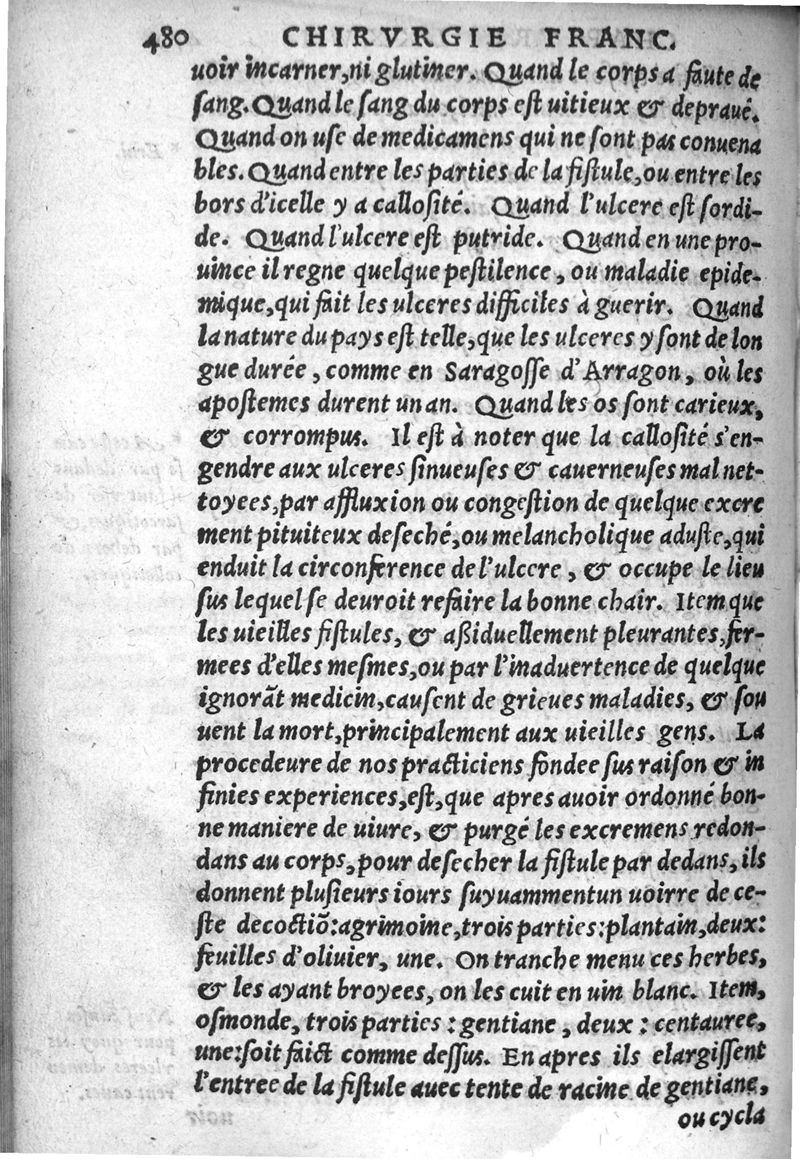 480 CHIRVRGIE FRANC.
uoir incarner, ni glutiner. Quand le corps a faute de
ſang. Quand le ſang du corps eſt uitieux & depraué.
Quand on uſe de medicamens qui ne ſont pas conuena
bles. Quand entre les parties de la fiſtule, ou entre les
bors d'icelle y a calloſité. Quand l'ulcere eſt ſordi-
de. Quand l'ulcere eſt putride. Quand en une pro-
uince il regne quelque peſtilence, ou maladie epide-
mique, qui fait les ulceres difficiles à guerir. Quand
la nature du pays eſt telle, que les ulceres y ſont de lon
gue durée, comme en Saragoſſe d'Arragon, où les
apoſtemes durent un an. Quand les os ſont carieux,
& corrompus. Il eſt à noter que la calloſité s'en-
gendre aux ulceres ſinueuſes & cauerneuſes mal net-
toyees, par affluxion ou congeſtion de quelque excre
ment pituiteux deſeché, ou melancholique aduſte, qui
enduit la circonference de l'ulcere, & occupe le lieu
sus lequel ſe deuroit refaire la bonne chair. Item que
les uieilles fiſtules, & aßiduellement pleurantes, fer-
mees d'elles meſmes, ou par l'inaduertence de quelque
ignorãt medicin, cauſent de grieues maladies, & ſou
uent la mort, principalement aux uieilles gens. La
procedeure de nos practiciens fondee ſus raiſon & in
finies experiences, eſt, que apres auoir ordonné bon-
ne maniere de uiure, & purgé les excremens redon-
dans au corps, pour deſecher la fiſtule par dedans, ils
donnent pluſieurs iours ſuyuamment un uoirre de ce-
ſte decoctiõ: agrimoine, trois parties: plantain, deux:
feuilles d'oliuier, une. On tranche menu ces herbes,
& les ayant broyees, on les cuit en uin blanc. Item,
oſmonde, trois parties: gentiane, deux: centauree,
une: ſoit faict comme deſſus. En apres ils elargiſſent
l'entree de la fiſtule auec tente de racine de gentiane,
ou cycla